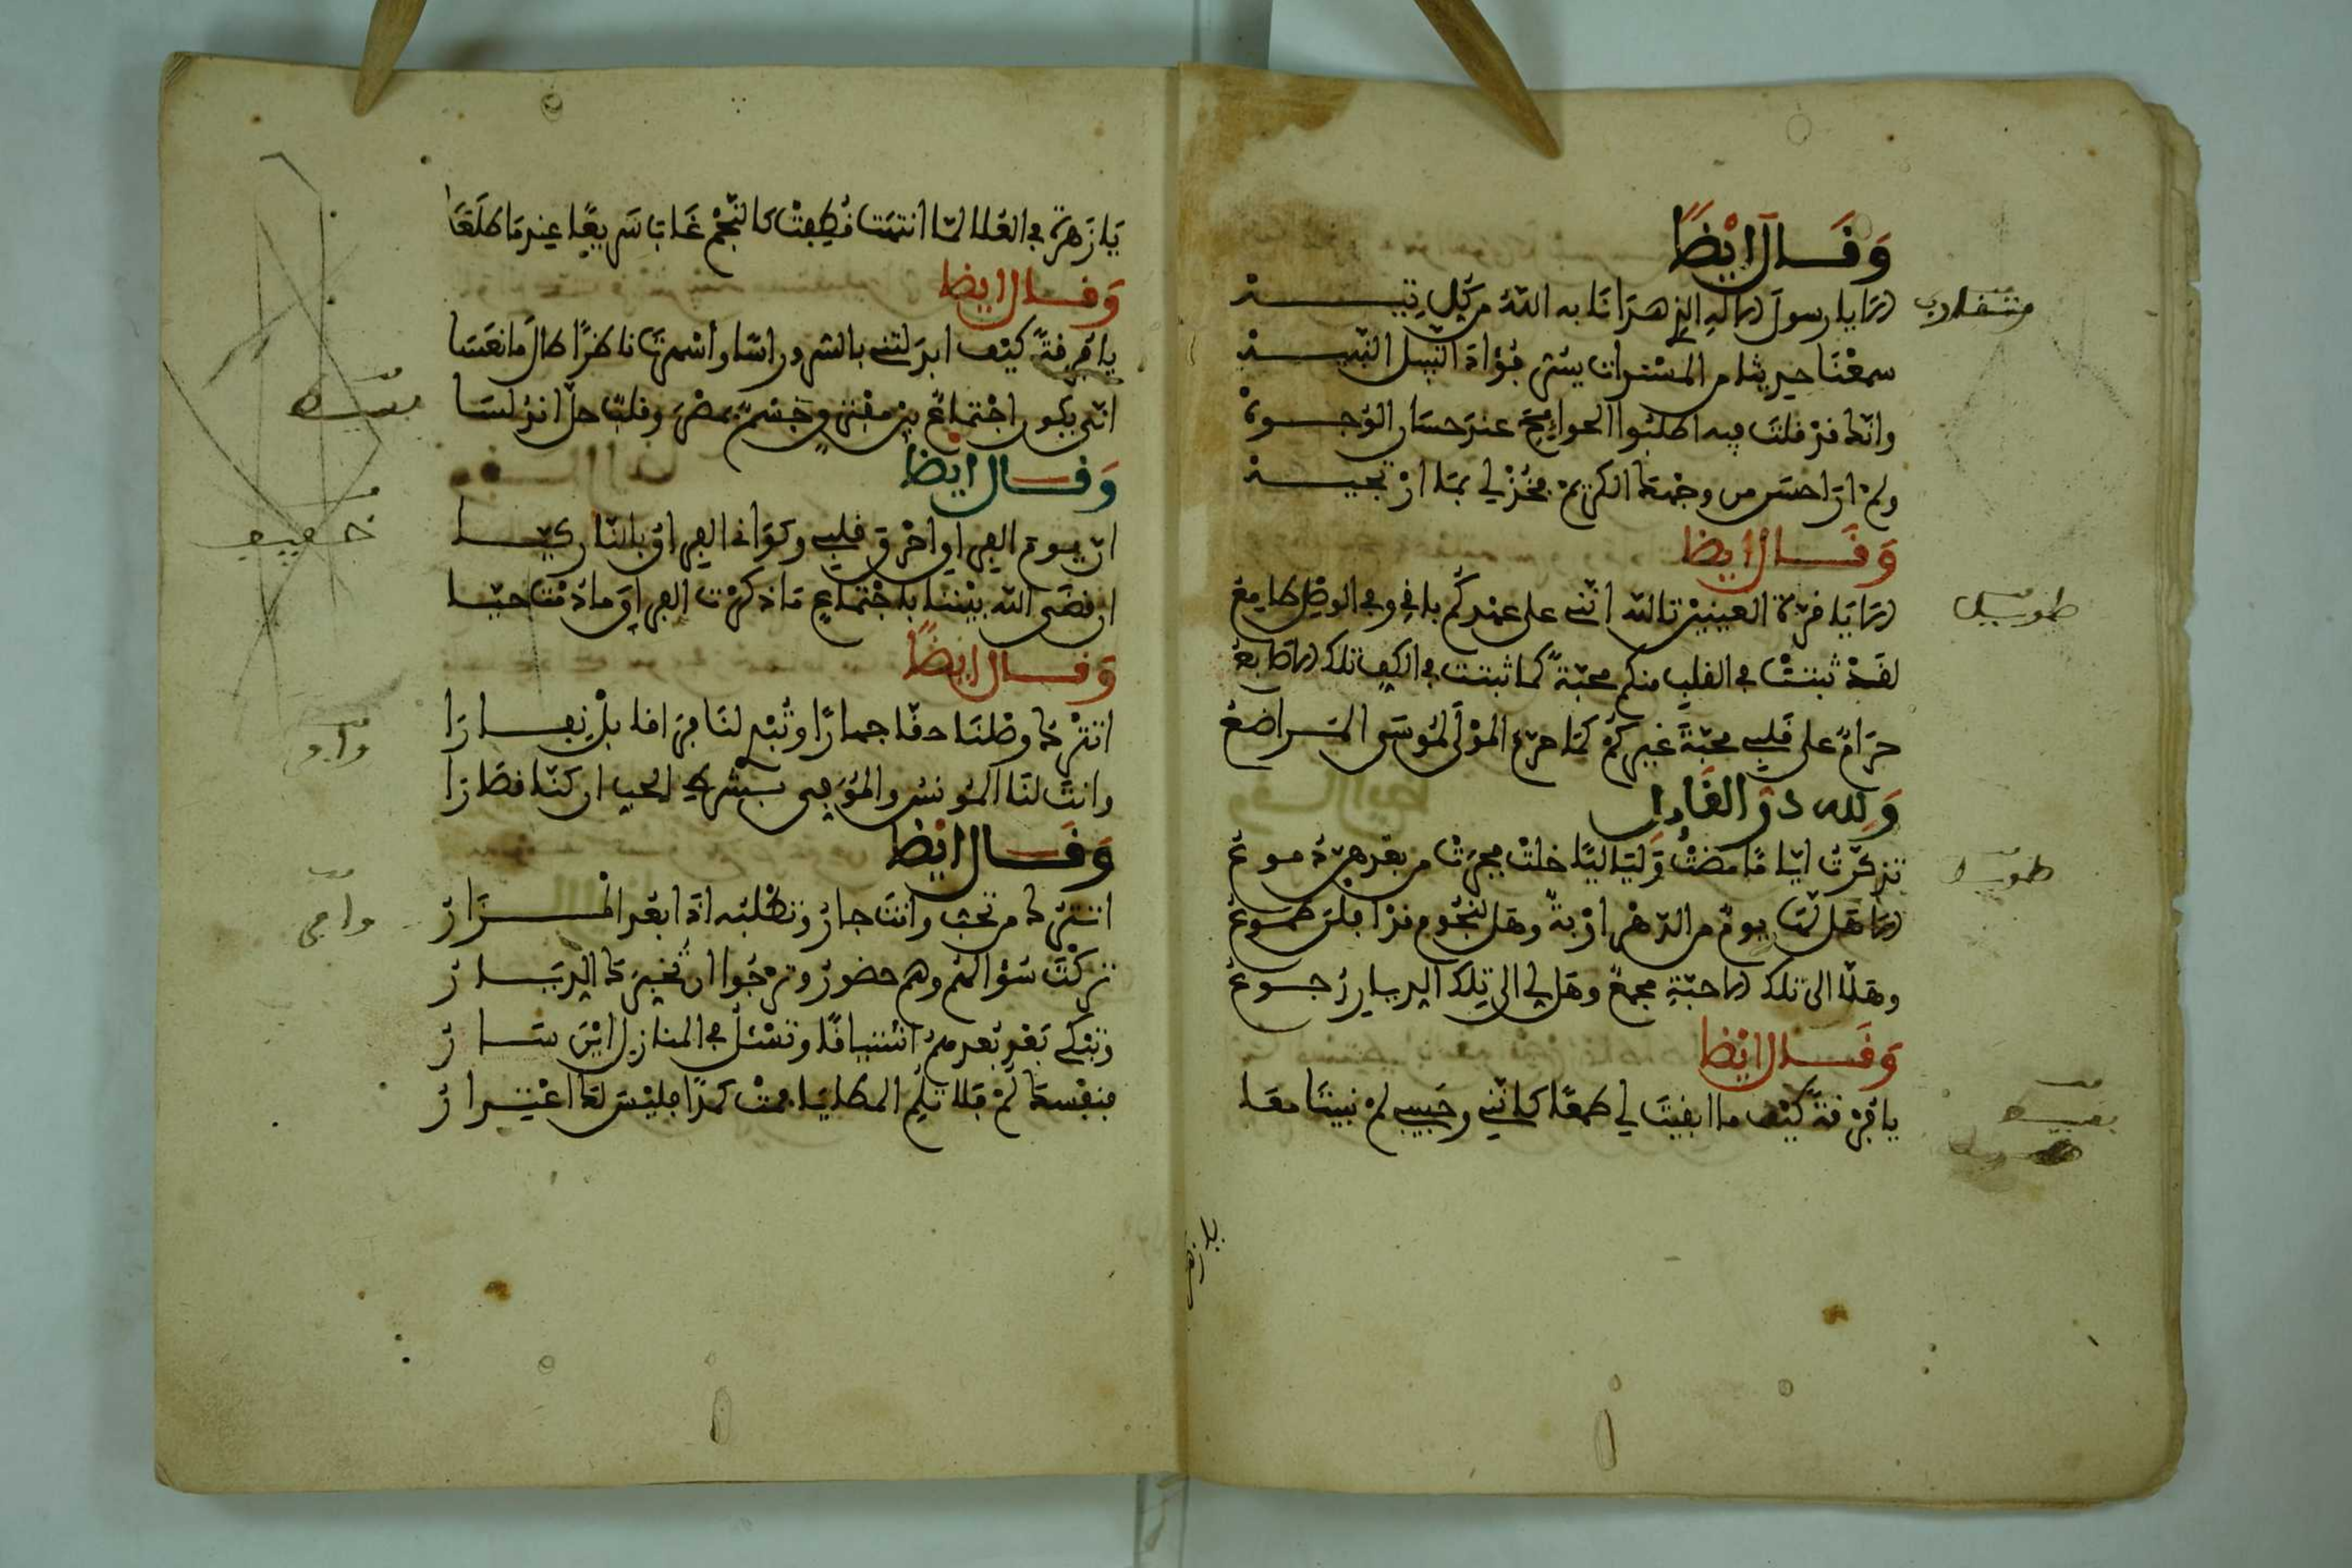 وَقَالَ ايْضًا
متقارب
الا يا رسول الاله الذي هدانا به الله من كل تيه
سمعنا حديثا من المسندات يسر فؤاد النبيل النبيه
وانك قد قلت فيه اطلبوا الحوائج عند حسان الوجوه
ولم ار احسن من وجهك الكريم فجد لي بما ارتجيه
وَقَالَ ايضا
طويل
الا يا قرة العينين تالله انني على عهدكم باق وفي الوصل طامع
لقد ثبتت في القلب منكم محبة كما ثبتت في الكف تلك الاصابع
حرام على قلبي محبة غيركم كما حرم المولى لموسى المراضع
وَلله در القائل
طويل
تذكرت اياما مضت ولياليا خلت فجرت من بعدهن دموع
الا هل لنا يوم من الدهر اوبة وهل لنجوم قد افلن طلوع
وهل الى تلك الاحبة مجمع وهل لي الى تلك الديار رجوع
وَقَالَ ايْضا
بسيط
يا فرقة كيف ما ابقيت لي طمعا كانني وحبيبي لم نبيتا معا
يا زهرة
يا زهرة في العلا لما انتهت قطفت كالنجم غاب سريعا عندما طلعا
وَقال ايضا
بسيط
يا فرقة كيف ابدلتني بالسرور اسا واسهرت ناظرا طال ما نعسا
انى يكون اجتماع بين مفترق جسم بمصر وقلب حل اندلسا
وَقال ايضا
خفيف
ان يوم الفراق احرق قلبي وكواني الفراق بالنار كيا
ان قضى الله بيننا باجتماع ما ذكرت الفراق ما دمت حيا
وَقال ايضًا
وافر
اتتركما وصلنا حقا جمارا وتبد لنا فراقا بل نفارا
وانت لنا المونس والموفى بشرك الحب ان كنا قصارا
وَقَال ايْضا
وافر
اتترك من تحب وانت جار وتطلبه اذا بعد المزار
تركت سؤالهم وهم حضور وترجوا ان تخبرك الديار
وتبكي بعد بعدهم اشتياقا وتسئل في المنازل اين سار
فنفسك لم فلا تلم المطايا فمت كمدا فليس لك اعتذار